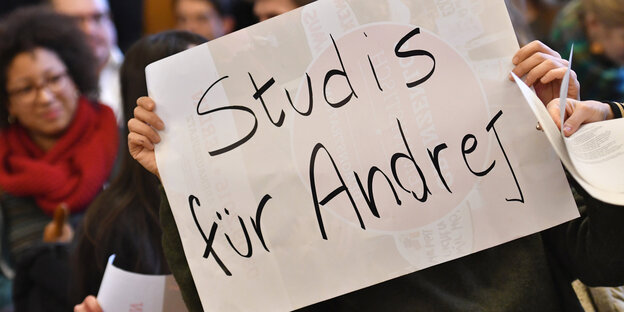 Studis
für Andrej